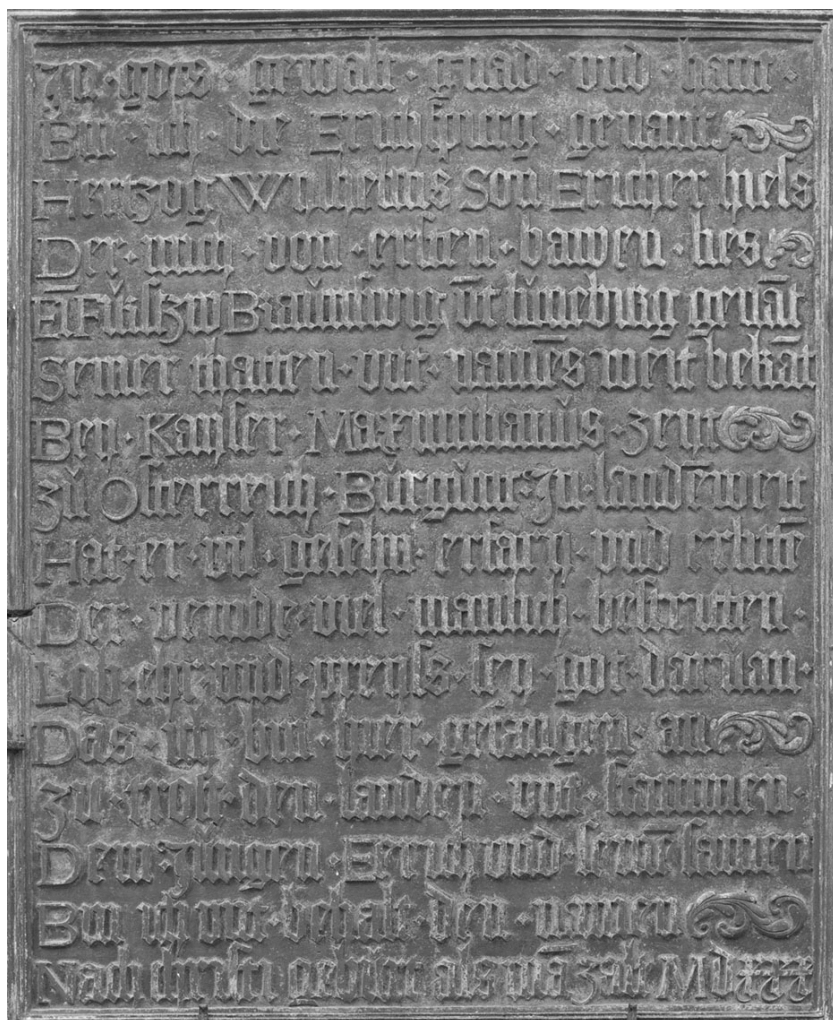 Jn · gots · gewalt · gnad · vnd · hant ·
Bin · ich · die Erichspurg · genant
Hertzog Wilhelms Son Ericher hiess
Der · mich · von · ersten · bawen · lies
Ei Fůrst zw Braunswig vn̄t lůneburg genāt
Seiner thatten · vnt · namēs weit bekāt
Bey · Kayser · Maximilianůs · zeyt
Zů Osterreich · Bůrgůnt · Jn · landē weyt
Hat · er · vil · gesehn · erfarn · vnd erlittē
Der · veinde · viel · manlich · bestritten ·
Lob · ehr · vnd · preyss · sey · got · daruan ·
Das · ich · bin · hier · gefangen · an
Zu · trost · den · landen · vnt · stammen ·
Dem · Jůngen · Ericch · vnd · seinē samen
Bin ich vnt · behalt · den · namen
Nach christi gebůrt als mā zalt Mdxxx